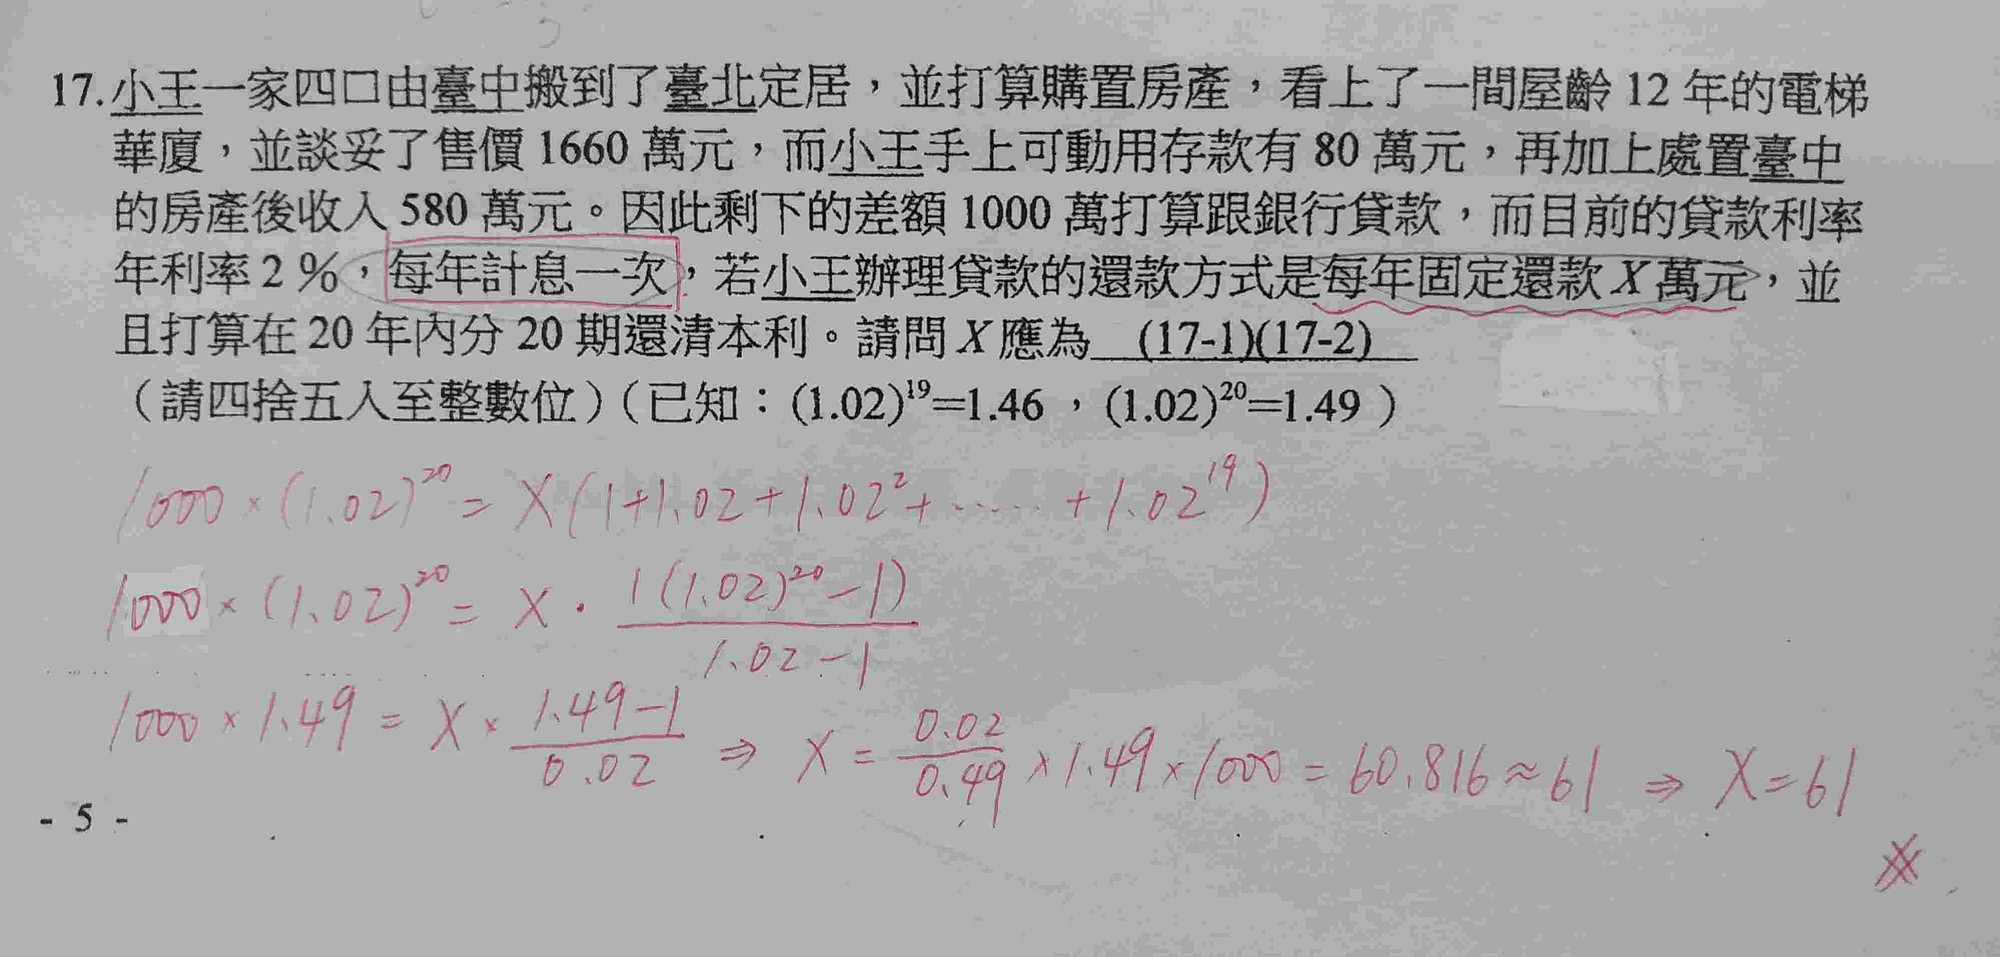 17.小王一家四口由臺中搬到了臺北定居，並打算購置房產，看上了一間屋齡 12 年的電梯
華廈，並談妥了售價 1660 萬元，而小王手上可動用存款有 80 萬元，再加上處置臺中
的房產後收入 580 萬元。因此剩下的差額 1000 萬打算跟銀行貸款，而目前的貸款利率
年利率 2 %，每年計息一次，若小王辦理貸款的還款方式是每年固定還款 X 萬元，並
且打算在 20 年內分 20 期還清本利。請問 X 應為 (17-1)(17-2)
（請四捨五入至整數位）（已知：(1.02)¹⁹=1.46，(1.02)²⁰=1.49 ）
1000 × (1.02)²⁰ = X(1+1.02+1.02²+……+1.02¹⁹)
1000 × (1.02)²⁰ = X · 1((1.02)²⁰-1) / 1.02-1
1000 × 1.49 = X × 1.49-1 / 0.02 ⇒ X = 0.02 / 0.49 × 1.49 × 1000 = 60.816 ≈ 61 ⇒ X = 61
- 5 -